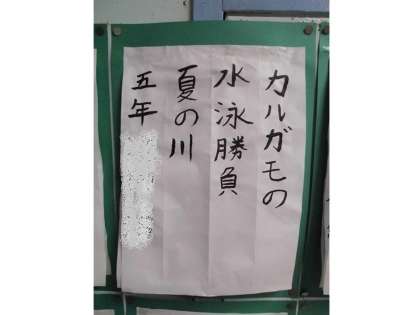 カルガモの
水泳勝負
夏の川
五年